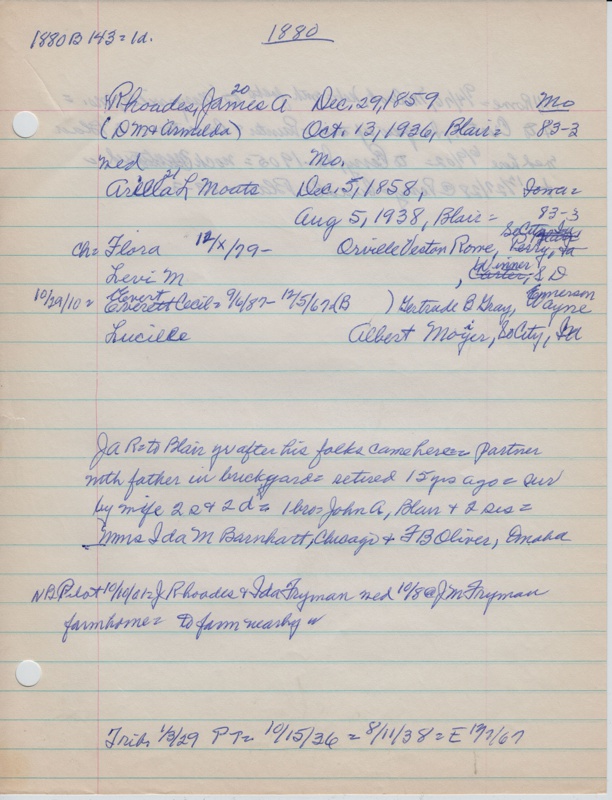 1880B 143=1d. 1880
20
Rhoades, James A Dec. 29, 1859 Mo
(DM & Armilda) Oct. 13, 1936, Blair= 83-3
wed Mo.
21
Arilla L Moats Dec. 5, 1858, Iowa=
Aug 5, 1938, Blair= 83-3
Ch= Flora 12/x/79- Orville Veston Rowe, Perry, Ia
SoCity, Ia
Levi M , Carter, S D
Winner
10/29/10= Everett Cecil= 9/6/87- 12/5/67 (B ) Gertrude B Gray, Wayne
Clevert Emmerson
Lucille Albert Moyer, SoCity, Ia
Ja R= to Blair yr after his folks came here= partner
with father in brickyard= retired 15 yrs ago= sur
by wife 2 s & 2 d= 1 bro= John A, Blair & 2 sis=
Mrs Ida M Barnhart, Chicago & F B Oliver, Omaha
NB Pilot 10/10/01= J Rhoades & Ida Fryman wed 10/8 @ J M Fryman
farmhome= to farm nearby
Trib 1/3/29 PT= 10/15/36 = 8/11/38 = E 12/7/67